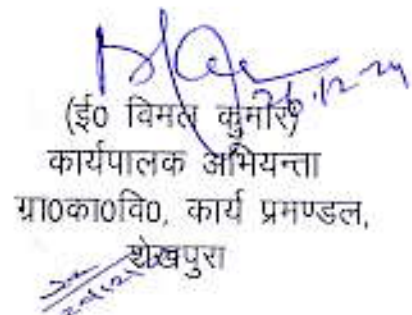 26.12.24
(ई0 विमल कुमार)
कार्यपालक अभियन्ता
ग्रा0का0वि0, कार्य प्रमण्डल,
शेखपुरा